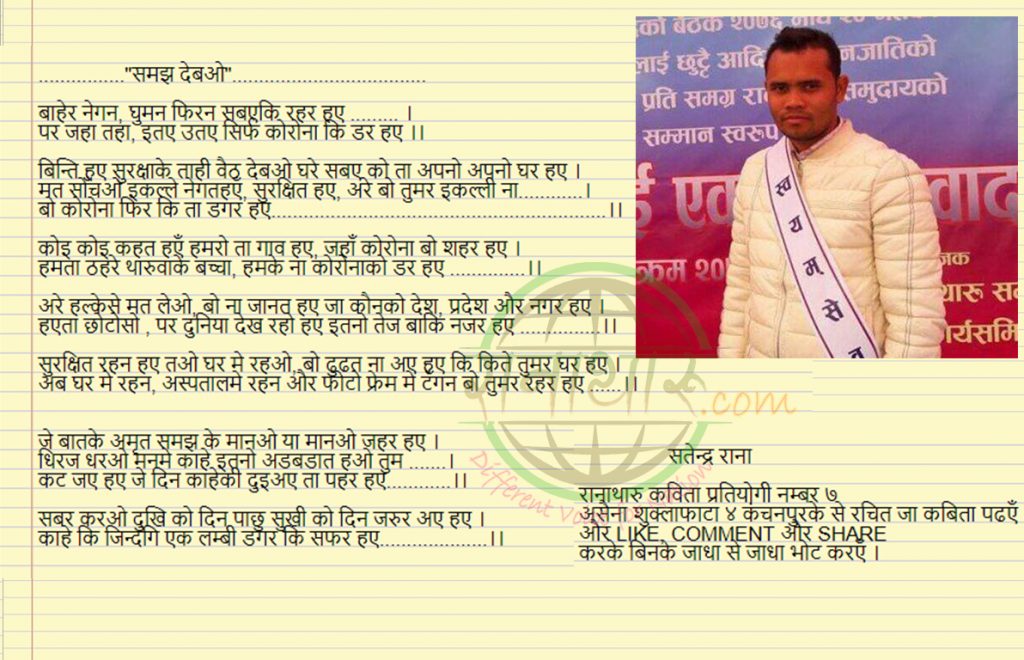 ................"समझ देबओ"....................................
बाहेर नेगन, घुमन फिरन सबएकि रहर हए ......... ।
पर जहा तहा, इतए उतए सिर्फ कोरोना कि डर हए ।।
बिन्ति हए सुरक्षाके ताही वैठ देबओ घरे सबए को ता अपनो अपनो घर हए ।
मत सोचओ इकल्ले नेगतहए, सुरक्षित हए, अरे बो तुमर इकल्ली ना............ ।
बो कोरोना फिर कि ता डगर हए...............................................................।।
कोइ कोइ कहत हएँ हमरो ता गाव हए, जहाँ कोरोना बो शहर हए ।
हमता ठहरे थारुवाके बच्चा, हमके ना कोरोनाको डर हए ..............।।
अरे हल्केसे मत लेओ, बो ना जानत हए जा कौनको देश, प्रदेश और नगर हए ।
हएता छोटोसो , पर दुनिया देख रहो हए इतनो तेज बाकि नजर हए ...............।।
सुरक्षित रहन हए तओ घर मे रहओ, बो ढुढत ना अए हए कि कितै तुमर घर हए ।
अब घर मे रहन, अस्पतालमे रहन और फोटो फ्रेम मे टंगन बो तुमर रहर हए ......।।
जे बातके अमृत समझ के मानओ या मानओ जहर हए ।
धिरज धरओ मनमे काहे इतनो अडबडात हओ तुम ....... ।
कट जए हए जे दिन काहेकी दुइअए ता पहर हए............।।
सबर करओ दुखि को दिन पाछु सुखी को दिन जरुर अए हए ।
काहे कि जिन्दगि एक लम्बी डगर कि सफर हए....................।।
सतेन्द्र राना
रानाथारु कविता प्रतियोगी नम्बर ७
असेना शुक्लाफाटा ४ कंचनपुरके से रचित जा कबिता पढएँ
और LIKE, COMMENT और SHARE
करके बिनके जाधा से जाधा भोट करएँ ।
को बैठक २०७६ माघ २०
लाई छुट्टै आदि नजातिको
प्रति समग्र रा समुदायको
सम्मान स्वरूप
ई ए वाद
क्रम २०
जक
थारू स
कार्यसमि
स्वयम्से
रानाथारु.com
Different Voice for Nation